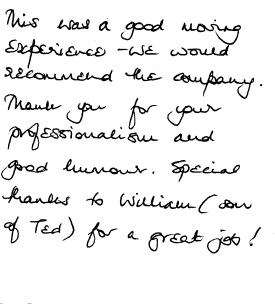 This was a good moving
experience - we would
recommend the company.
Thank you for your
professionalism and
good humour. Special
thanks to William (son
of Ted) for a great job!